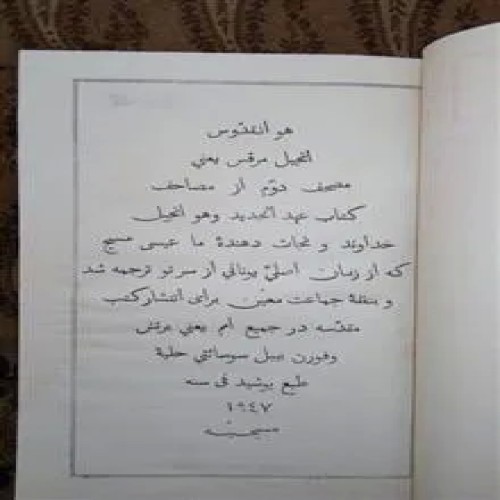 هو القدّوس
انجيل مرقس يعني
مصحف دوّم از مصاحف
كتاب عهد الجديد وهو انجيل
خداوند و نجات دهندهٔ ما عيسى مسيح
كه از زبان اصليّ يوناني از سر نو ترجمه شد
و بنفقهٔ جماعت معيّن براى انتشار كتب
مقدّسه در جميع امم يعني برتش
وفورن بيبل سوسائتي حلية
طبع پوشيد في سنه
١٩٤٧
مسيحيّه